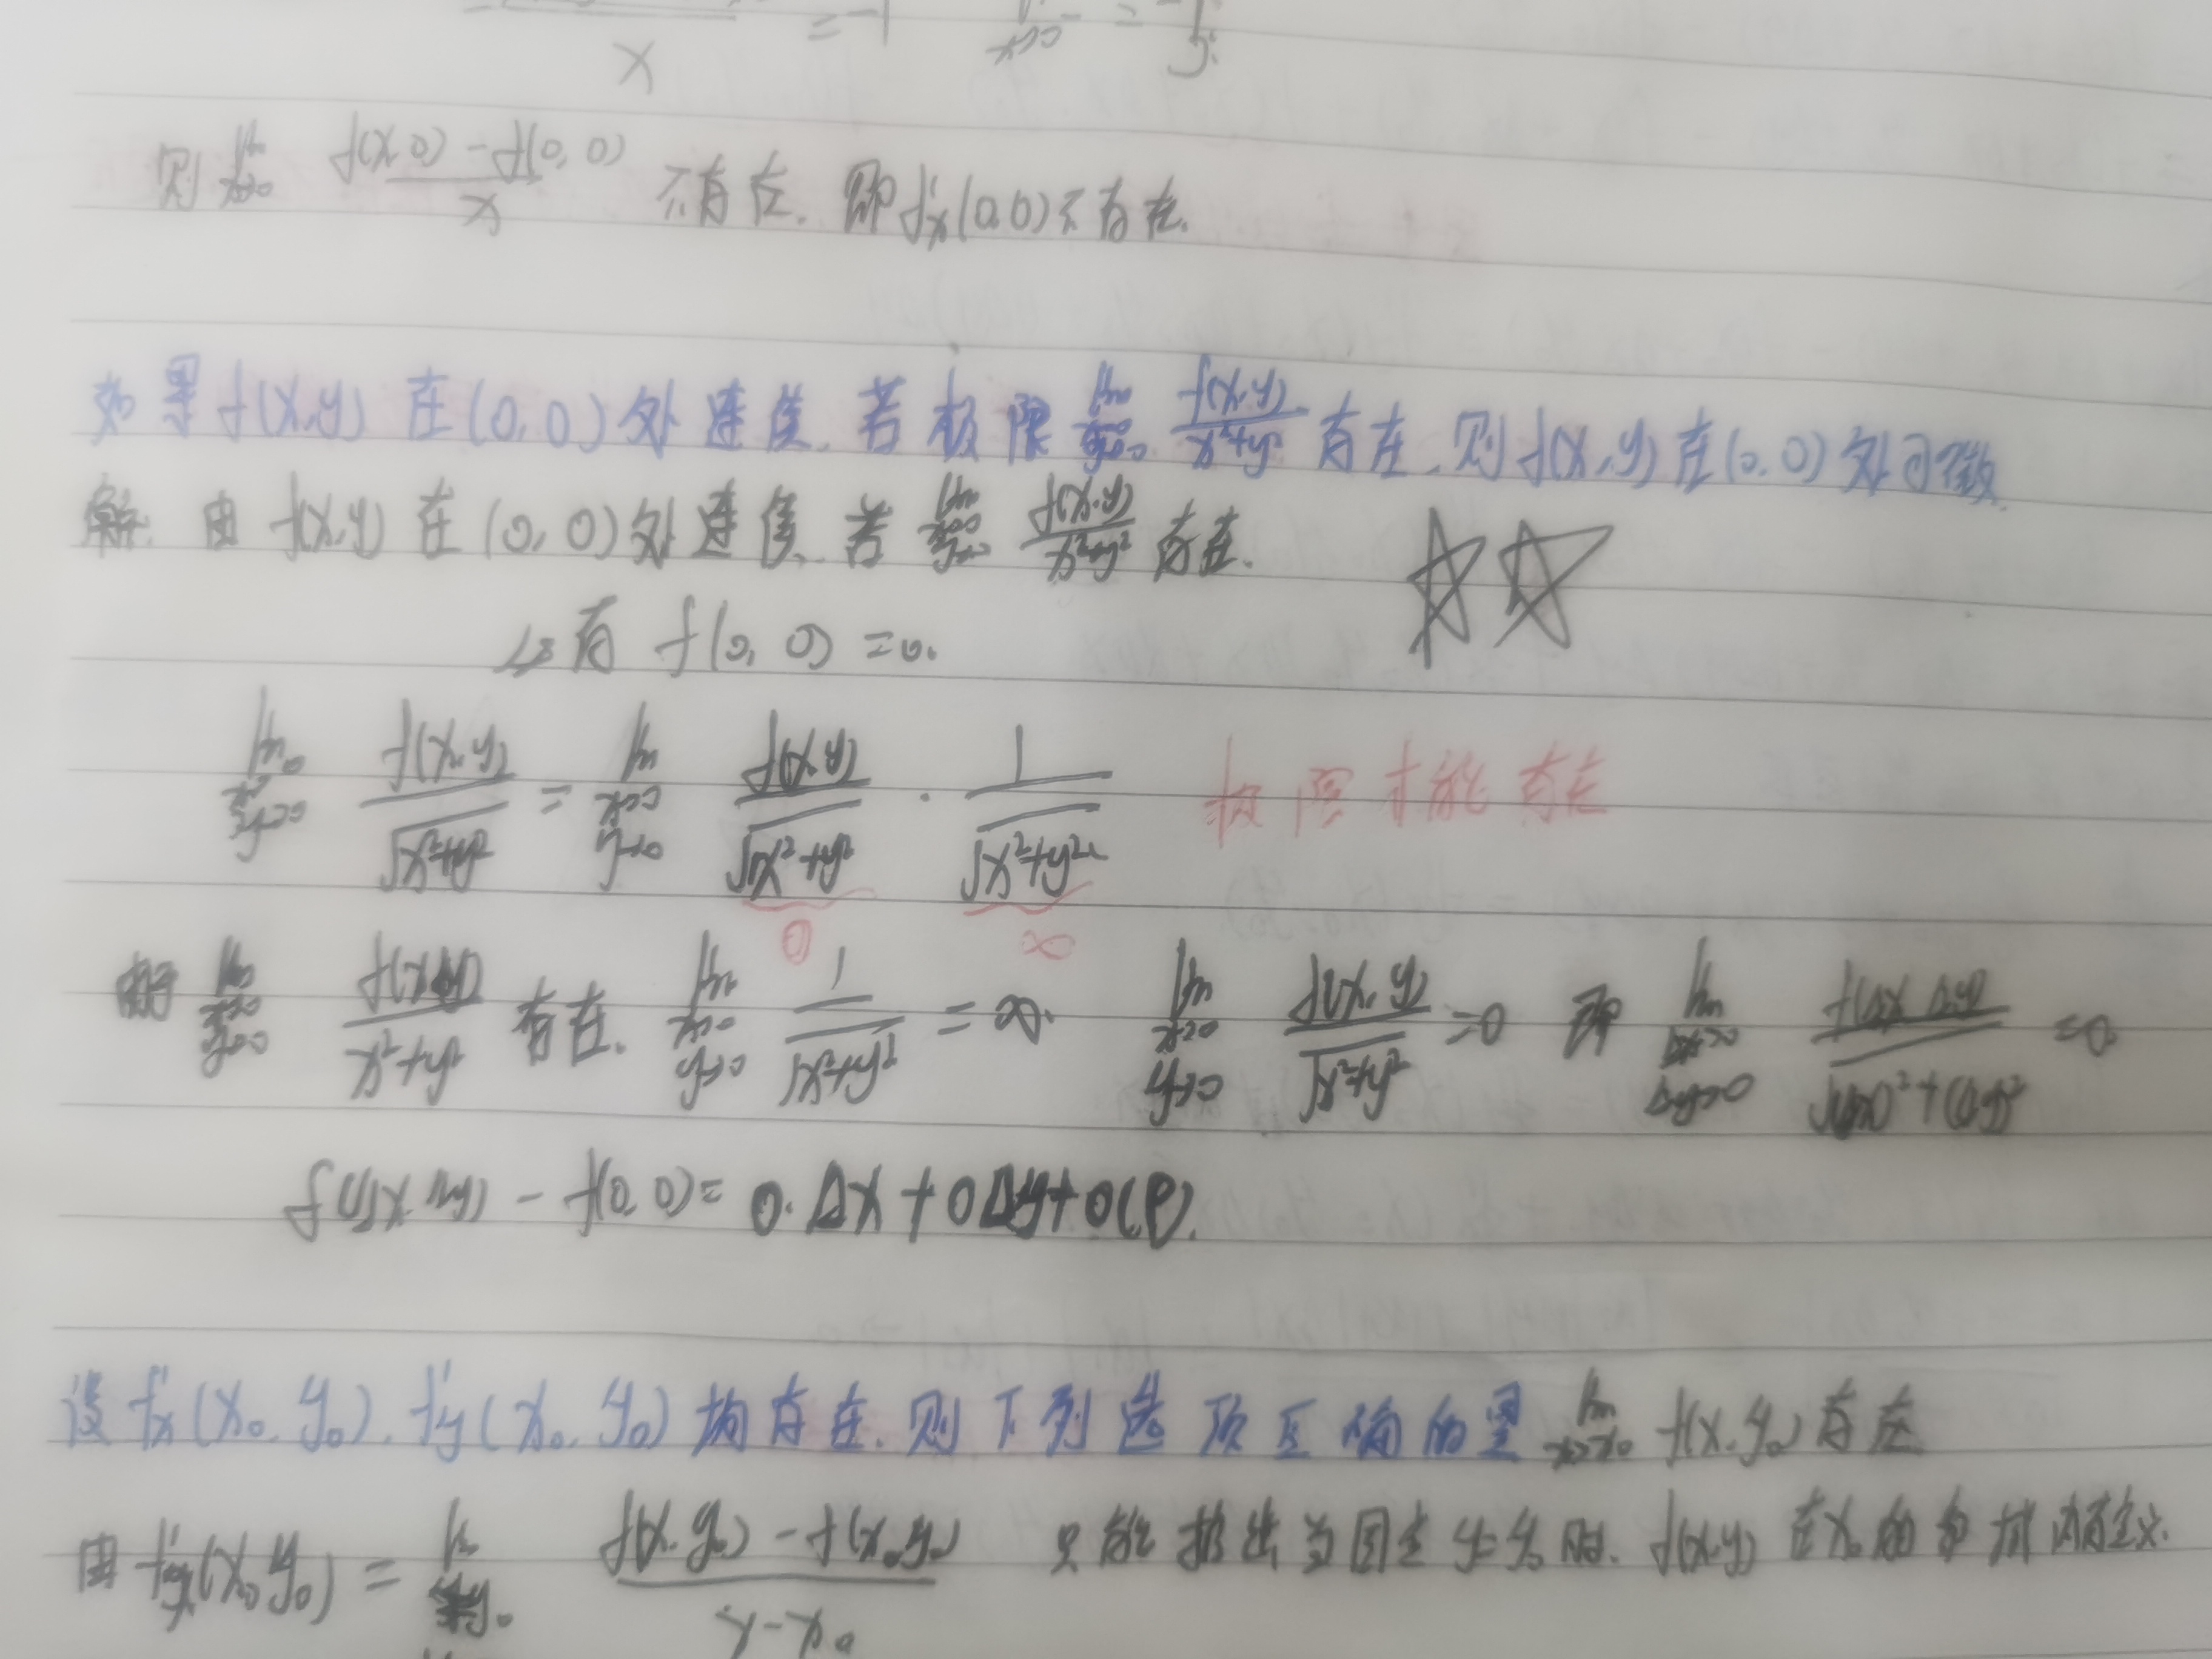 x = -1 x→0 = 1
则 lim x→0 f(x,0) - f(0,0) / x 不存在. 即 f'x(0,0) 不存在.
如果 f(x,y) 在 (0,0) 处连续, 若极限 lim x→0 y→0 f(x,y) / x²+y² 存在, 则 f(x,y) 在 (0,0) 处可微
解: 由 f(x,y) 在 (0,0) 处连续, 若 lim x→0 y→0 f(x,y) / x²+y² 存在.
有 f(0,0) = 0.
lim x→0 y→0 f(x,y) / √x²+y² = lim x→0 y→0 f(x,y) / √x²+y² · 1 / √x²+y² 极限才能存在
0 ∞
由于 lim x→0 y→0 f(x,y) / x²+y² 存在. lim x→0 y→0 1 / √x²+y² = ∞. lim x→0 y→0 f(x,y) / √x²+y² = 0 即 lim Δx→0 Δy→0 f(Δx,Δy) / √(Δx)²+(Δy)² = 0
f(Δx,Δy) - f(0,0) = 0·Δx + 0Δy + o(ρ).
设 f'x(x₀,y₀), f'y(x₀,y₀) 均存在, 则下列选项正确的是 lim x→x₀ f(x,y₀) 存在
由 (x₀,y₀) = lim f(x,y₀) - f(x₀,y₀) / x - x₀ 只能推出当固定 y=y₀ 时, f(x,y) 在 x₀ 的邻域内有定义.